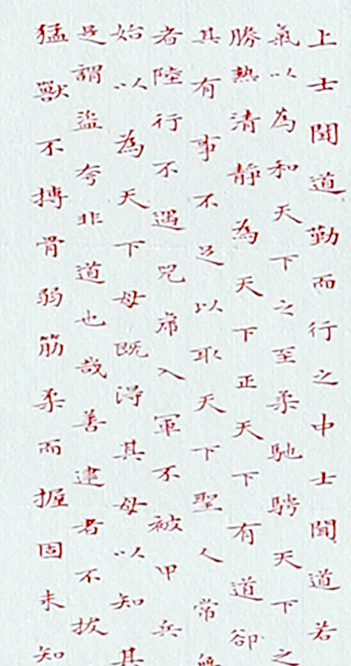 上士聞道勤而行之中士聞道若
氣以為和天下之至柔馳騁天下之
勝熱清靜為天下正天下有道卻
其有事不足以取天下聖人常無
者陸行不遇兕虎入軍不被甲兵
始以為天下母既得其母以知其
是謂盜夸非道也哉善建者不拔
猛獸不搏骨弱筋柔而握固未知